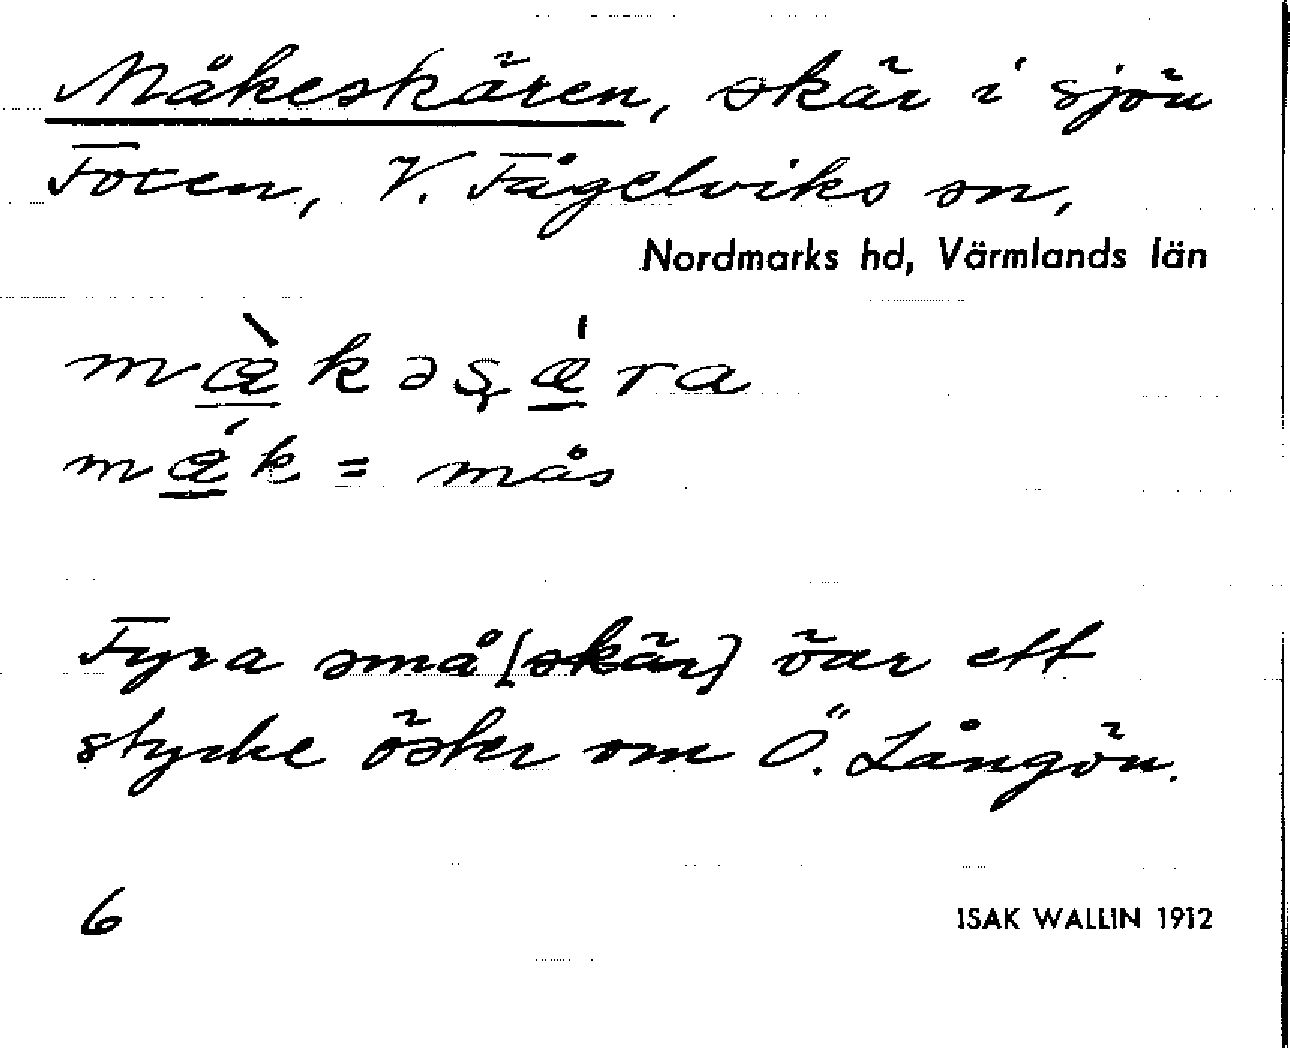 Måkeskären, skär i sjön
Foxen, V. Fågelviks sn,
Nordmarks hd, Värmlands län
mæ̀kəşǽra
mǽk = mås
Fyra små [skär] öar ett
stycke öster om Ö. Långön.
6
ISAK WALLIN 1912